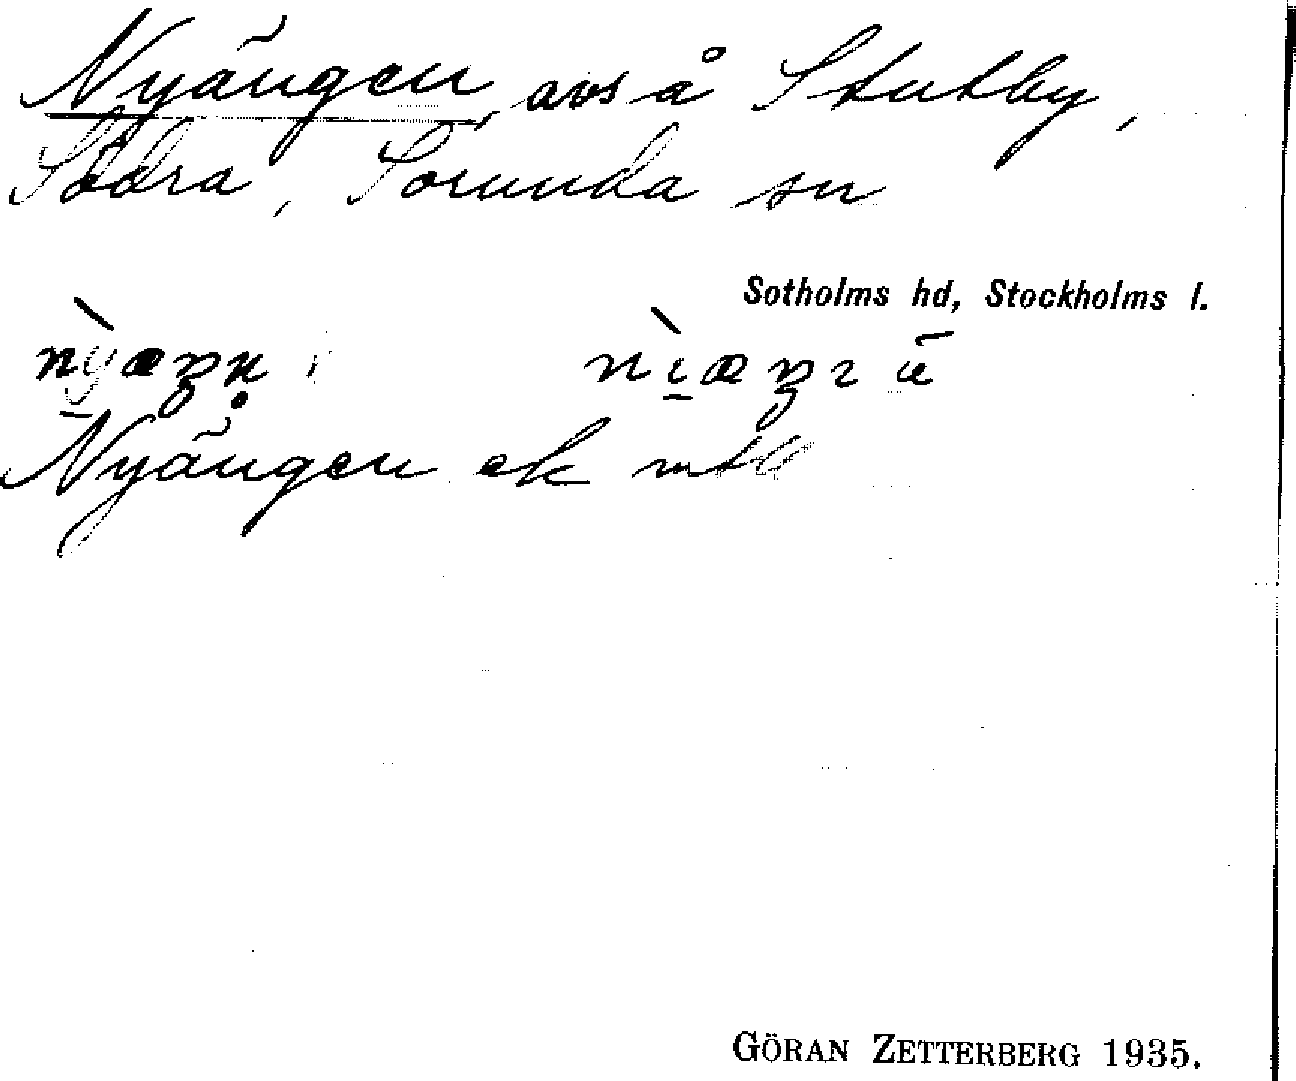 Nyängen, avs å Stutby,
Södra, Sorunda sn
Sotholms hd, Stockholms l.
Nyängen ek
GÖRAN ZETTERBERG 1935.